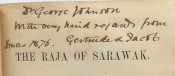 Dr George Johnson
With very kind regards from
Xmas 1876. Gertrude L Jacob
THE RAJA OF SARAWAK.